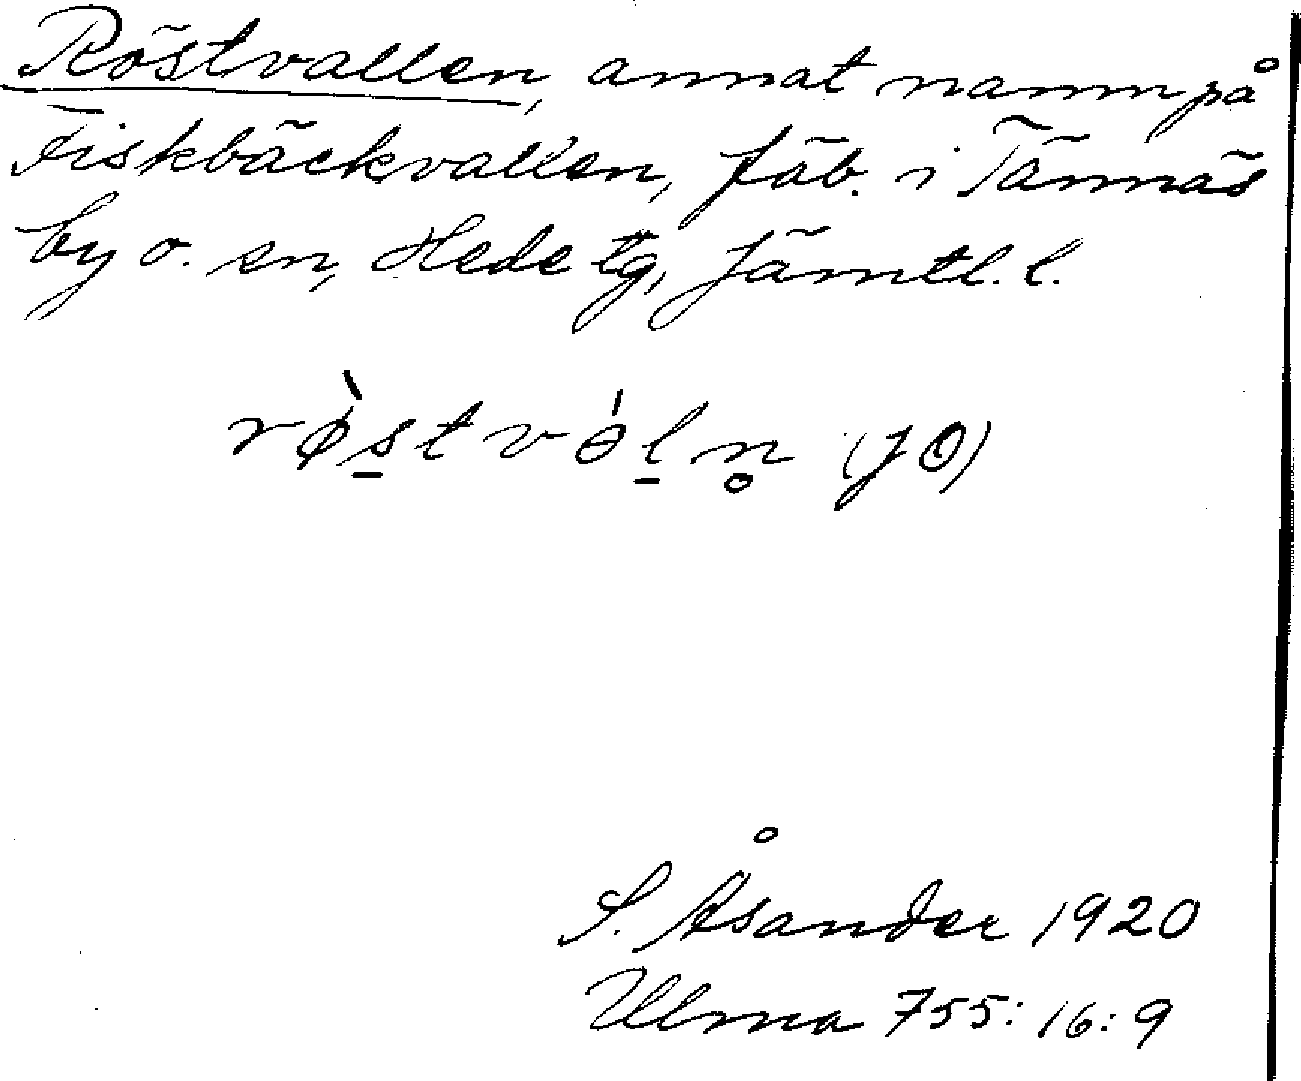 Röstvallen, annat namn på
Fiskbäckvallen, fäb. i Tännäs
by o. sn, Hede tg, Jämtl. l.
rø̀s̲tvɵ́l̲n̥ (JO)
S. Åsander 1920
Ulma 755:16:9